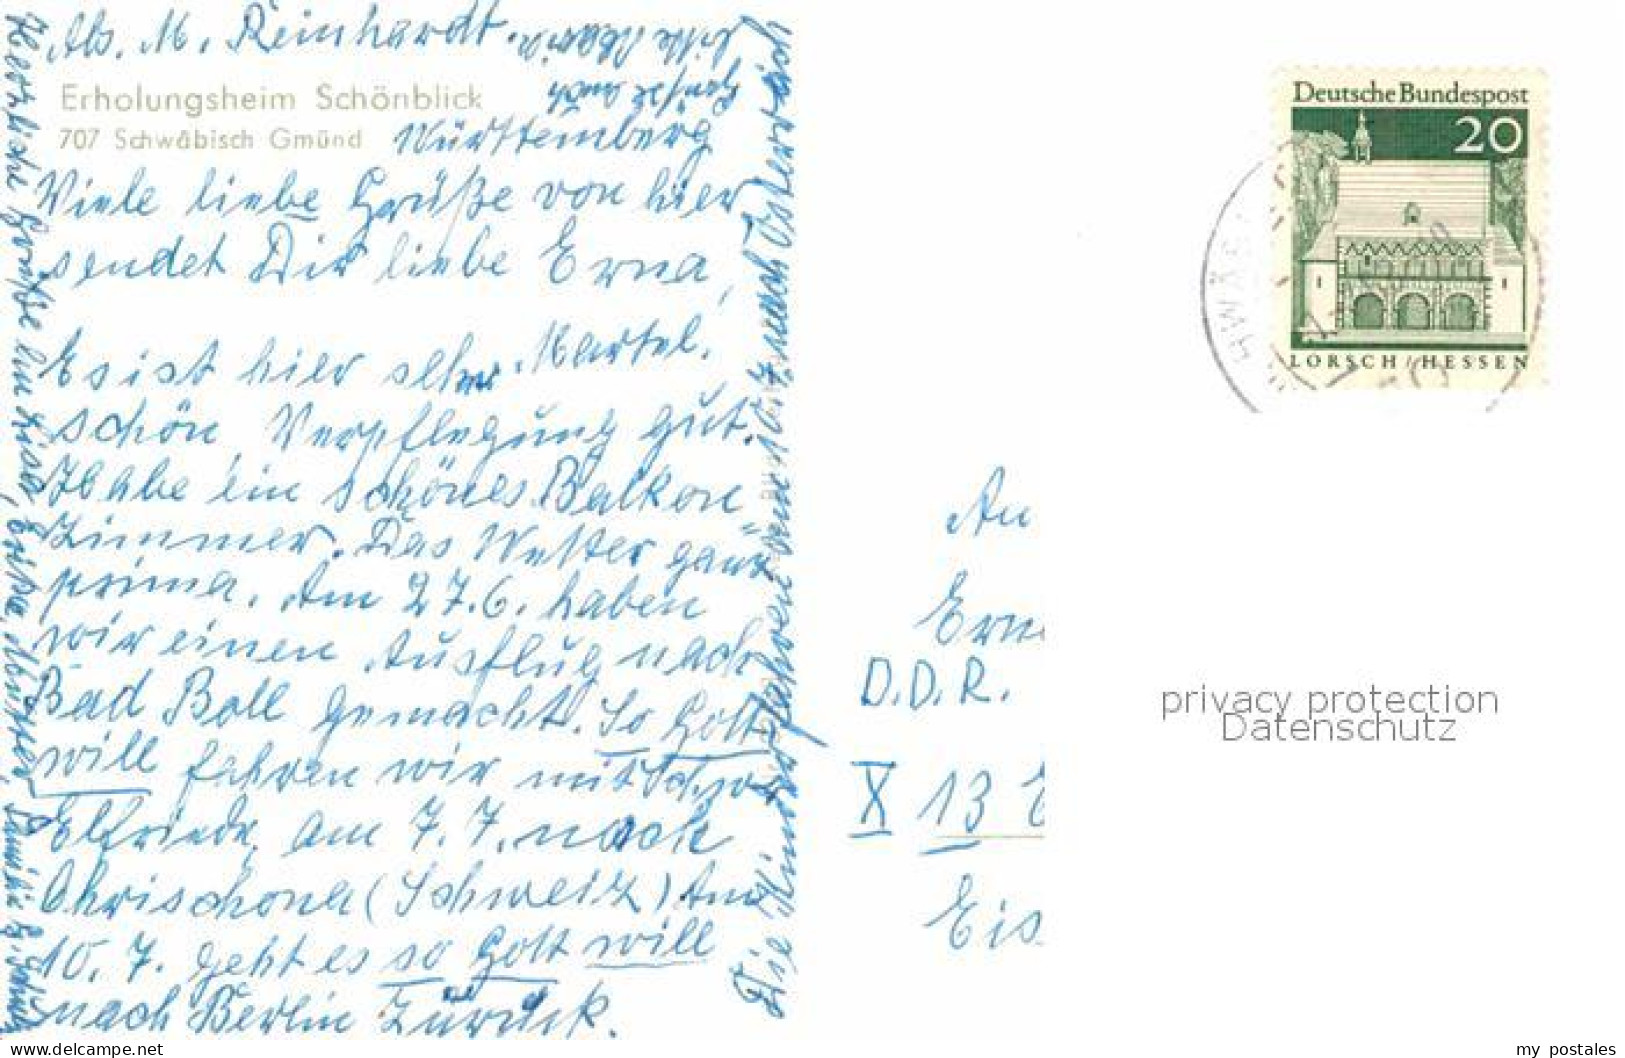 Abs. M. Reinhardt.
Erholungsheim Schönblick
707 Schwäbisch Gmünd
Württemberg
Viele liebe Grüße von hier
sendet Dir liebe Erna,
Es ist hier sehr
schön Verpflegung gut.
Ich habe ein schönes Balkon-
zimmer. Das Wetter ganz
prima. Am 27.6. haben
wir einen Ausflug nach
Bad Boll gemacht. So Gott
will fahren wir mit
Elfriede, am 7.7. nach
Chrischona (Schweiz) Am
10.7. geht es so Gott will
nach Berlin zurück.
Die Kinder fahren am nach Österreich
Herzliche Grüße
Deutsche Bundespost
20
LORSCH/HESSEN
An
D.D.R.
X 13
privacy protection
Datenschutz
delcampe.net
my_postales